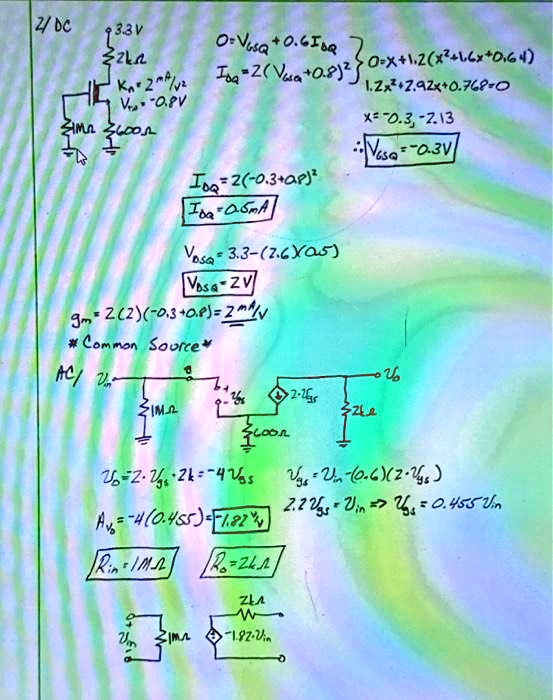 2/ DC
3.3V
2kΩ
Kn = 2 mA/V²
VTn = -0.8V
1MΩ
600Ω
0 = VGSQ + 0.6IDQ
IDQ = 2(VGSQ+0.8)²
0 = x+1.2(x²+1.6x+0.64)
1.2x²+2.92x+0.768=0
x = -0.3, -2.13
∴ VGSQ = -0.3V
IDQ = 2(-0.3+0.8)²
IDQ = 0.5mA
VDSQ = 3.3-(2.6)(0.5)
VDSQ = 2V
gm = 2(2)(-0.3+0.8) = 2 mA/V
* Common Source *
AC/
Vin
1MΩ
+
- Vgs
2·Vgs
600Ω
2kΩ
Vo
Vo = 2·Vgs·2k = -4Vgs
Vgs = Vin-(0.6)(2·Vgs)
2.2Vgs = Vin => Vgs = 0.455Vin
Avo = -4(0.455) = -1.82 V/V
Rin = 1MΩ
Ro = 2kΩ
+
Vin
-
1MΩ
2kΩ
-1.82·Vin